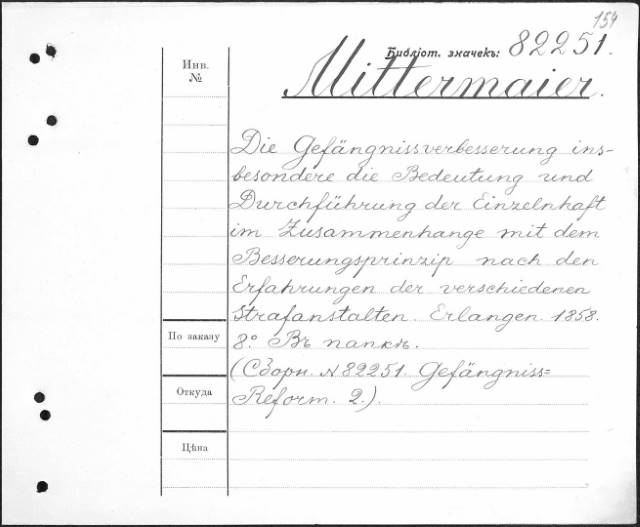 154
Библіот. значекъ: 82251.
Инв.
№
Mittermaier.
Die Gefängnissverbesserung ins-
besondere die Bedeutung und
Durchführung der Einzelnhaft
im Zusammenhange mit dem
Besserungsprinzip nach den
Erfahrungen der verschiedenen
Strafanstalten. Erlangen. 1858.
По заказу
8.° Въ папкѣ.
(Сборн. № 82251. Gefängniss=
Откуда
Reform. 2.).
Цѣна